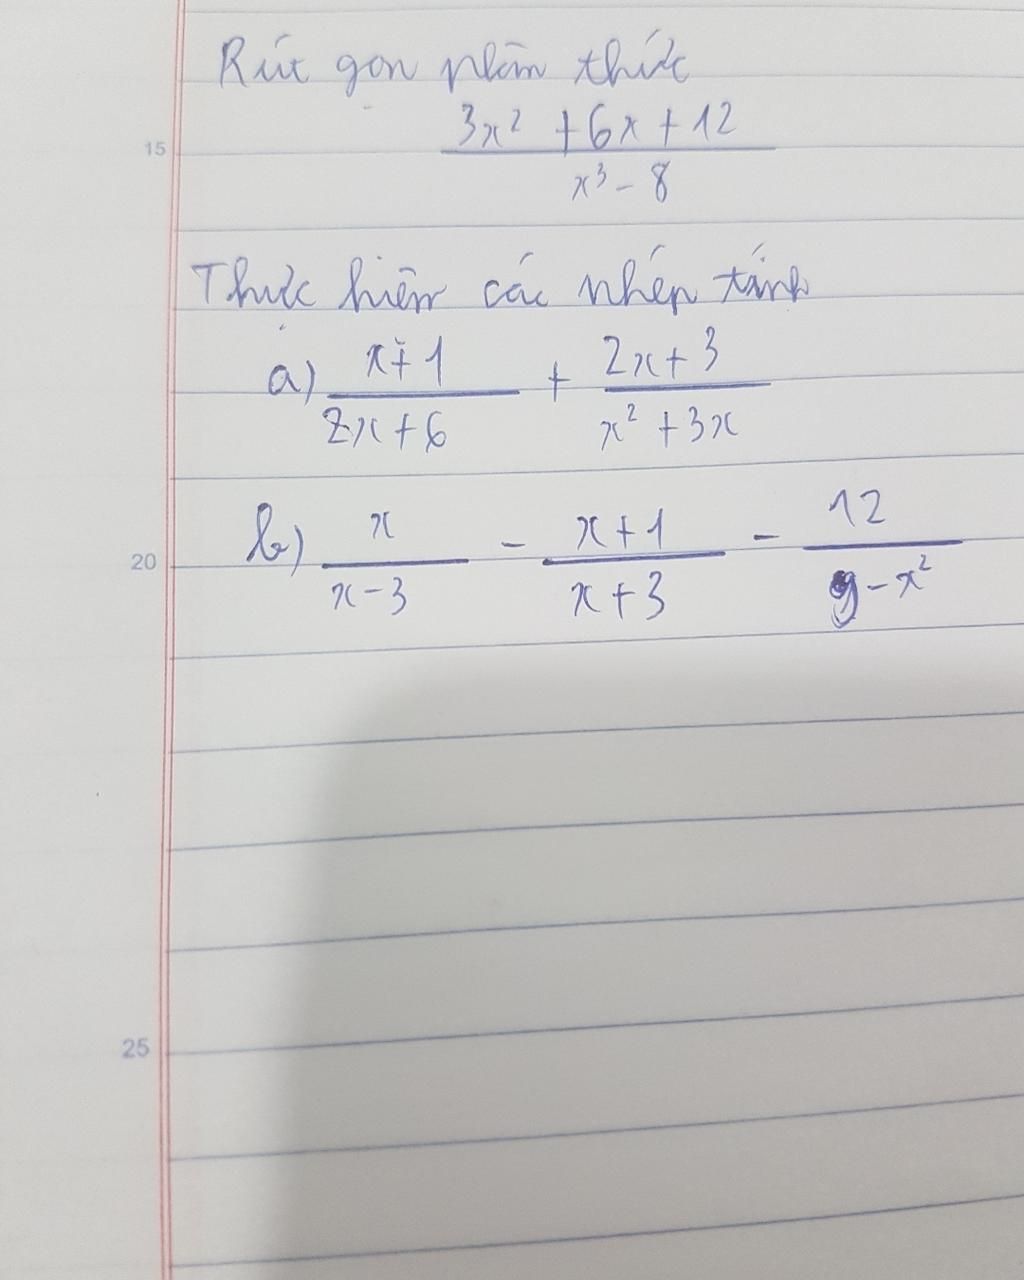 Rút gọn phân thức
3x² + 6x + 12
15
x³ - 8
Thực hiện các phép tính
a) x + 1 / 2x + 6 + 2x + 3 / x² + 3x
b) x / x - 3 - x + 1 / x + 3 - 12 / 9 - x²
20
25